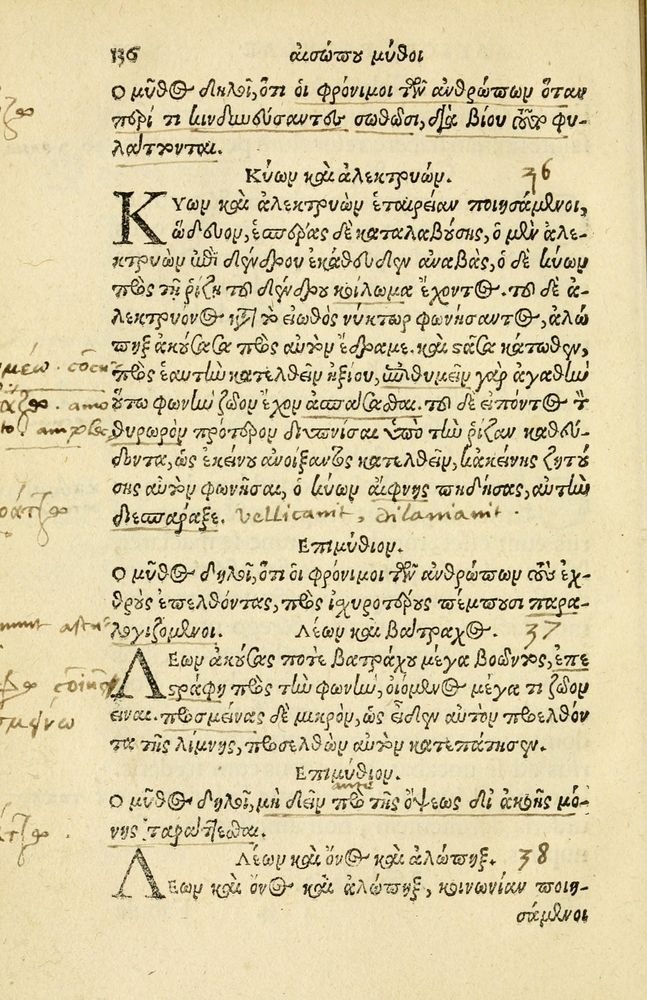 136 αἰσώπου μῦθοι
Ο μῦθος δηλοῖ, ὅτι οἱ φρόνιμοι τῶν ἀνθρώπων ὅταν
περί τι κινδυνεύσαντες σωθῶσι, διὰ βίου αὐτὸ φυ-
λάττονται.
Κύων καὶ ἀλεκτρυών. 36
ΚΥων καὶ ἀλεκτρυὼν ἑταιρείαν ποιησάμενοι,
ὥδευον, ἑσπέρας δὲ καταλαβούσης, ὁ μὲν ἀλε-
κτρυὼν ἐπὶ δένδρου ἐκάθευδεν ἀναβάς, ὁ δὲ κύων
πρὸς τῇ ῥίζῃ τοῦ δένδρου κοίλωμα ἔχοντος. τοῦ δὲ ἀ-
λεκτρυόνος κατὰ τὸ εἰωθὸς νύκτωρ φωνήσαντος, ἀλώ
πηξ ἀκούσασα πρὸς αὐτὸν ἔδραμε. καὶ στᾶσα κάτωθεν,
πρὸς ἑαυτὴν κατελθεῖν ἠξίου, ἐπιθυμεῖν γὰρ ἀγαθὴν
οὕτω φωνὴν ζῶον ἔχον ἀσπάσασθαι. τοῦ δὲ εἰπόντος τὸ
θυρωρὸν πρότερον διυπνίσαι ὑπὸ τὴν ῥίζαν καθεύ-
δοντα, ὡς ἐκείνου ἀνοίξαντος κατελθεῖν, κἀκείνης ζητού
σης αὐτὸν φωνῆσαι, ὁ κύων αἴφνης πηδήσας, αὐτὴν
διεσπάραξε. vellicavit, dilaniavit.
Επιμύθιον.
Ο μῦθος δηλοῖ, ὅτι οἱ φρόνιμοι τῶν ἀνθρώπων τοὺς ἐχ-
θροὺς ἐπελθόντας, πρὸς ἰχυροτέρους πέμπουσι παρα-
λογιζόμενοι. Λέων καὶ βάτραχος. 37
ΛΕων ἀκούσας ποτὲ βατράχου μέγα βοῶντος, ἐπε
στράφη πρὸς τὴν φωνὴν, οἰόμενος μέγα τι ζῶον
εἶναι. προσμείνας δὲ μικρὸν, ὡς εἶδεν αὐτὸν προελθόν
τα τῆς λίμνης, προσελθὼν αὐτὸν κατεπάτησεν.
Επιμύθιον.
ante
Ο μῦθος δηλοῖ, μὴ δεῖν πρὸ τῆς ὄψεως δι' ἀκοῆς μό-
νης ταράττεσθαι.
Λέων καὶ ὄνος καὶ ἀλώπηξ. 38
ΛΕων καὶ ὄνος καὶ ἀλώπηξ, κοινωνίαν ποιη-
σάμενοι